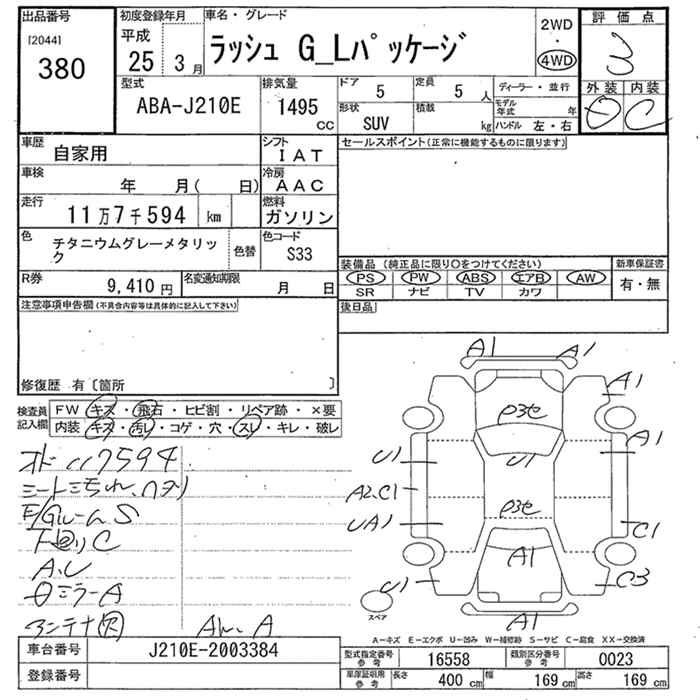 出品番号
[2044]
380
初度登録年月
平成
25 3月
車名・グレード
ラッシュ G_Lパッケージ
2WD
・
4WD
評価点
3
外装 内装
D C
型式
ABA-J210E
排気量
1495
cc
ドア 5
定員 5人
形状
SUV
積載
kg
ディーラー・並行
モデル年式 年
ハンドル 左・右
車歴
自家用
シフト
IAT
セールスポイント(正常に機能するものに限ります)
車検
年 月( 日)
冷房
AAC
走行
11万7千594 km
燃料
ガソリン
色
チタニウムグレーメタリック
色替
色コード
S33
R券
9,410円
名変通知期限
月 日
装備品(純正品に限り○をつけてください)
PS PW ABS エアB AW
SR ナビ TV カワ
新車保証書
有・無
後日品
注意事項申告欄(不具合内容等は具体的に記入して下さい)
修復歴 有〔箇所 〕
検査員記入欄
FW キズ・飛石・ヒビ割・リペア跡・×要
内装 キズ・汚レ・コゲ・穴・スレ・キレ・破レ
オド 117594
E/Gルーム S
A,U
ミラーA
アンテナ
A1 A1
A1
P3セ
U1
A1
U1
A2,C1
P3セ
UA1
C1
A1
U1
C3
A1
スペア
A－キズ E－エクボ U－凹み W－補修跡 S－サビ C－腐食 XX－交換済
車台番号
J210E-2003384
登録番号
型式指定番号
参考
16558
類別区分番号
参考
0023
車庫証明用
参考
長さ 400 cm
幅 169 cm
高さ 169 cm